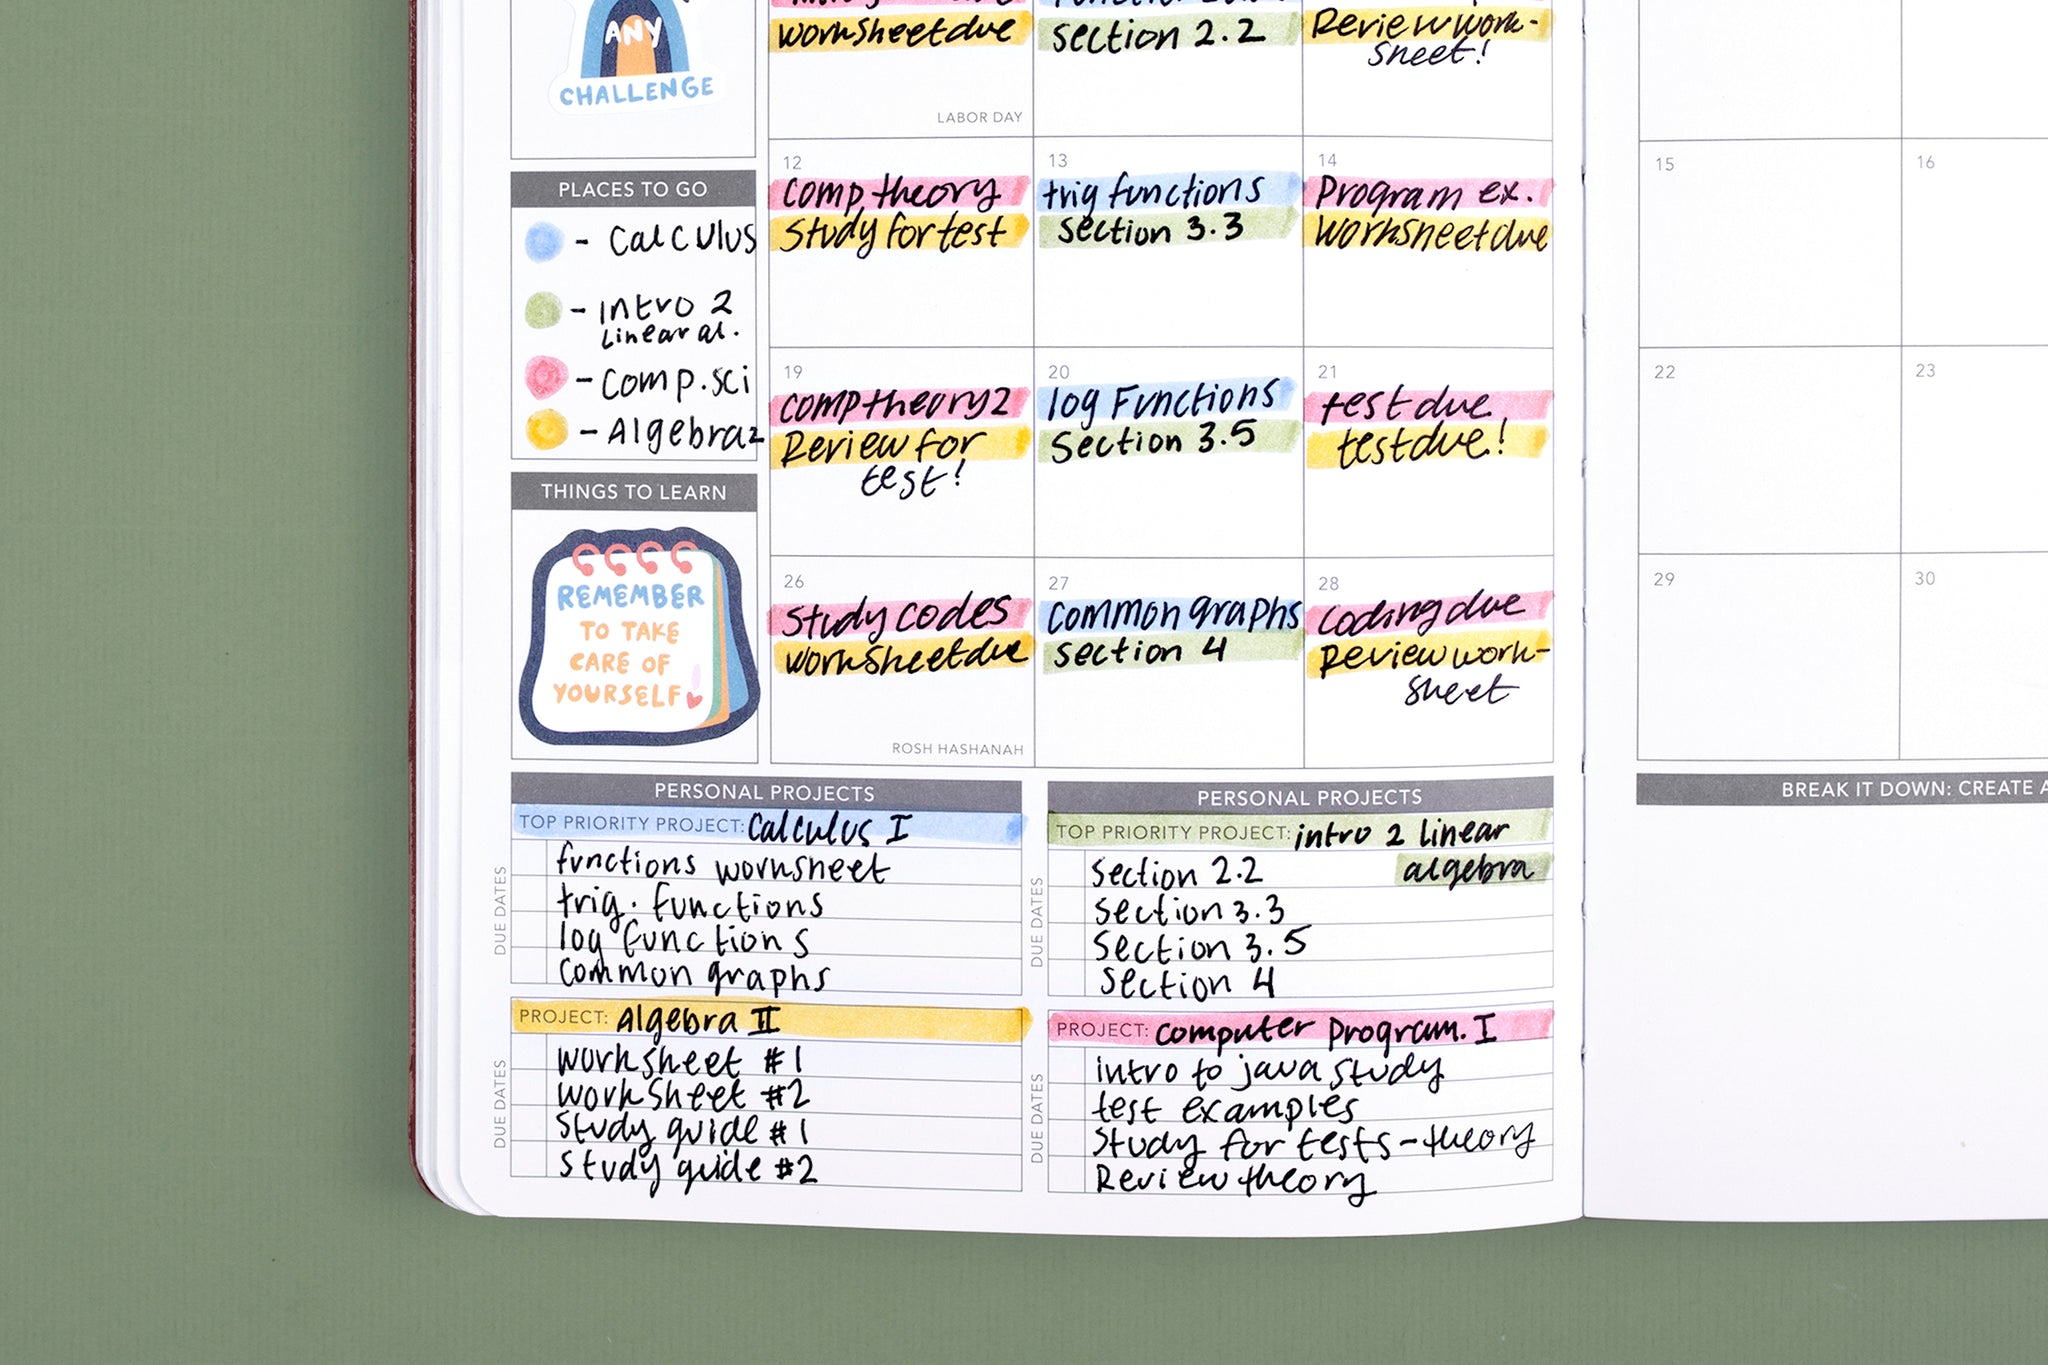 ANY
CHALLENGE
worksheet due
section 2.2
Review work-
sheet!
LABOR DAY
PLACES TO GO
- Calculus
- Intro 2
Linear al.
- Comp. sci
- Algebra 2
THINGS TO LEARN
REMEMBER
TO TAKE
CARE OF
YOURSELF!
12
comp, theory
Study for test
13
trig functions
section 3.3
14
Program ex.
Worksheet due
15
16
19
comp theory 2
Review for
test!
20
log Functions
Section 3.5
21
test due
test due!
22
23
26
Study codes
worksheet due
ROSH HASHANAH
27
common graphs
section 4
28
coding due
Review work-
sheet
29
30
PERSONAL PROJECTS
TOP PRIORITY PROJECT: Calculus I
DUE DATES
functions worksheet
trig. functions
log functions
common graphs
PROJECT: Algebra II
DUE DATES
worksheet #1
worksheet #2
study guide #1
study guide #2
PERSONAL PROJECTS
TOP PRIORITY PROJECT: intro 2 linear
algebra
DUE DATES
section 2.2
section 3.3
section 3.5
section 4
PROJECT: computer program. I
DUE DATES
intro to java study
test examples
Study for tests - theory
Review theory
BREAK IT DOWN: CREATE